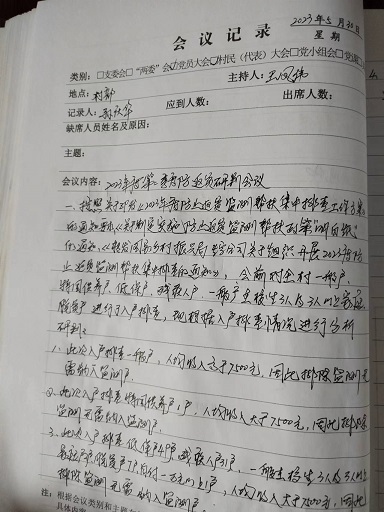 会议记录
2023年5月30日
星期
类别：□支委会□“两委”会☑党员大会□村民（代表）大会□党小组会□党课□
地点：村部
主持人：王凤伟
记录人：
应到人数：
出席人数：
缺席人员姓名及原因：
主题：
会议内容：2023年度第二季度防止返贫研判会议
一、按照关于印发2023年防止返贫监测帮扶集中排查工作方案
的通知和《关于 实施防止返贫监测帮扶政策“明白纸”
的通知、《 乡村振兴局 关于组织开展2023年防
止返贫监测帮扶集中排查的通知》，会前对全村一般户、
特困供养户、低保户、残疾人户、一般户 3人及3人以上
脱贫户进行了入户排查，现根据入户排查情况进行分析
研判：
1、此次入户排查一般户，人均收入大于7500元，因此排除监测无
需纳入监测户。
2、此次入户排查特困供养户1户，人均收入大于7500元，因此排除
监测无需纳入监测户。
3、此次入户排查低保户4户 残疾人户 一般 3人及3人以上
脱贫户7户 人均收入大于7500元，因此
排除监测无需纳入监测户。
注：根据会议类别和主题
具体内容